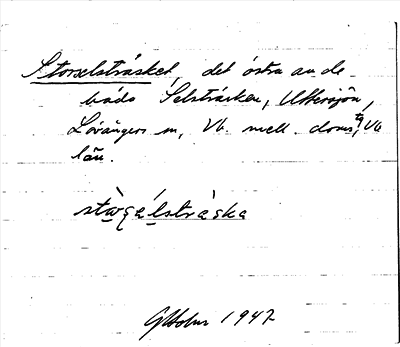 Storselsträsket, det östra av de
båda Selsträsken, Uttersjön,
Lövångers sn, Vb. mell. doms, Vb
län.
stωrsélstràska
1947